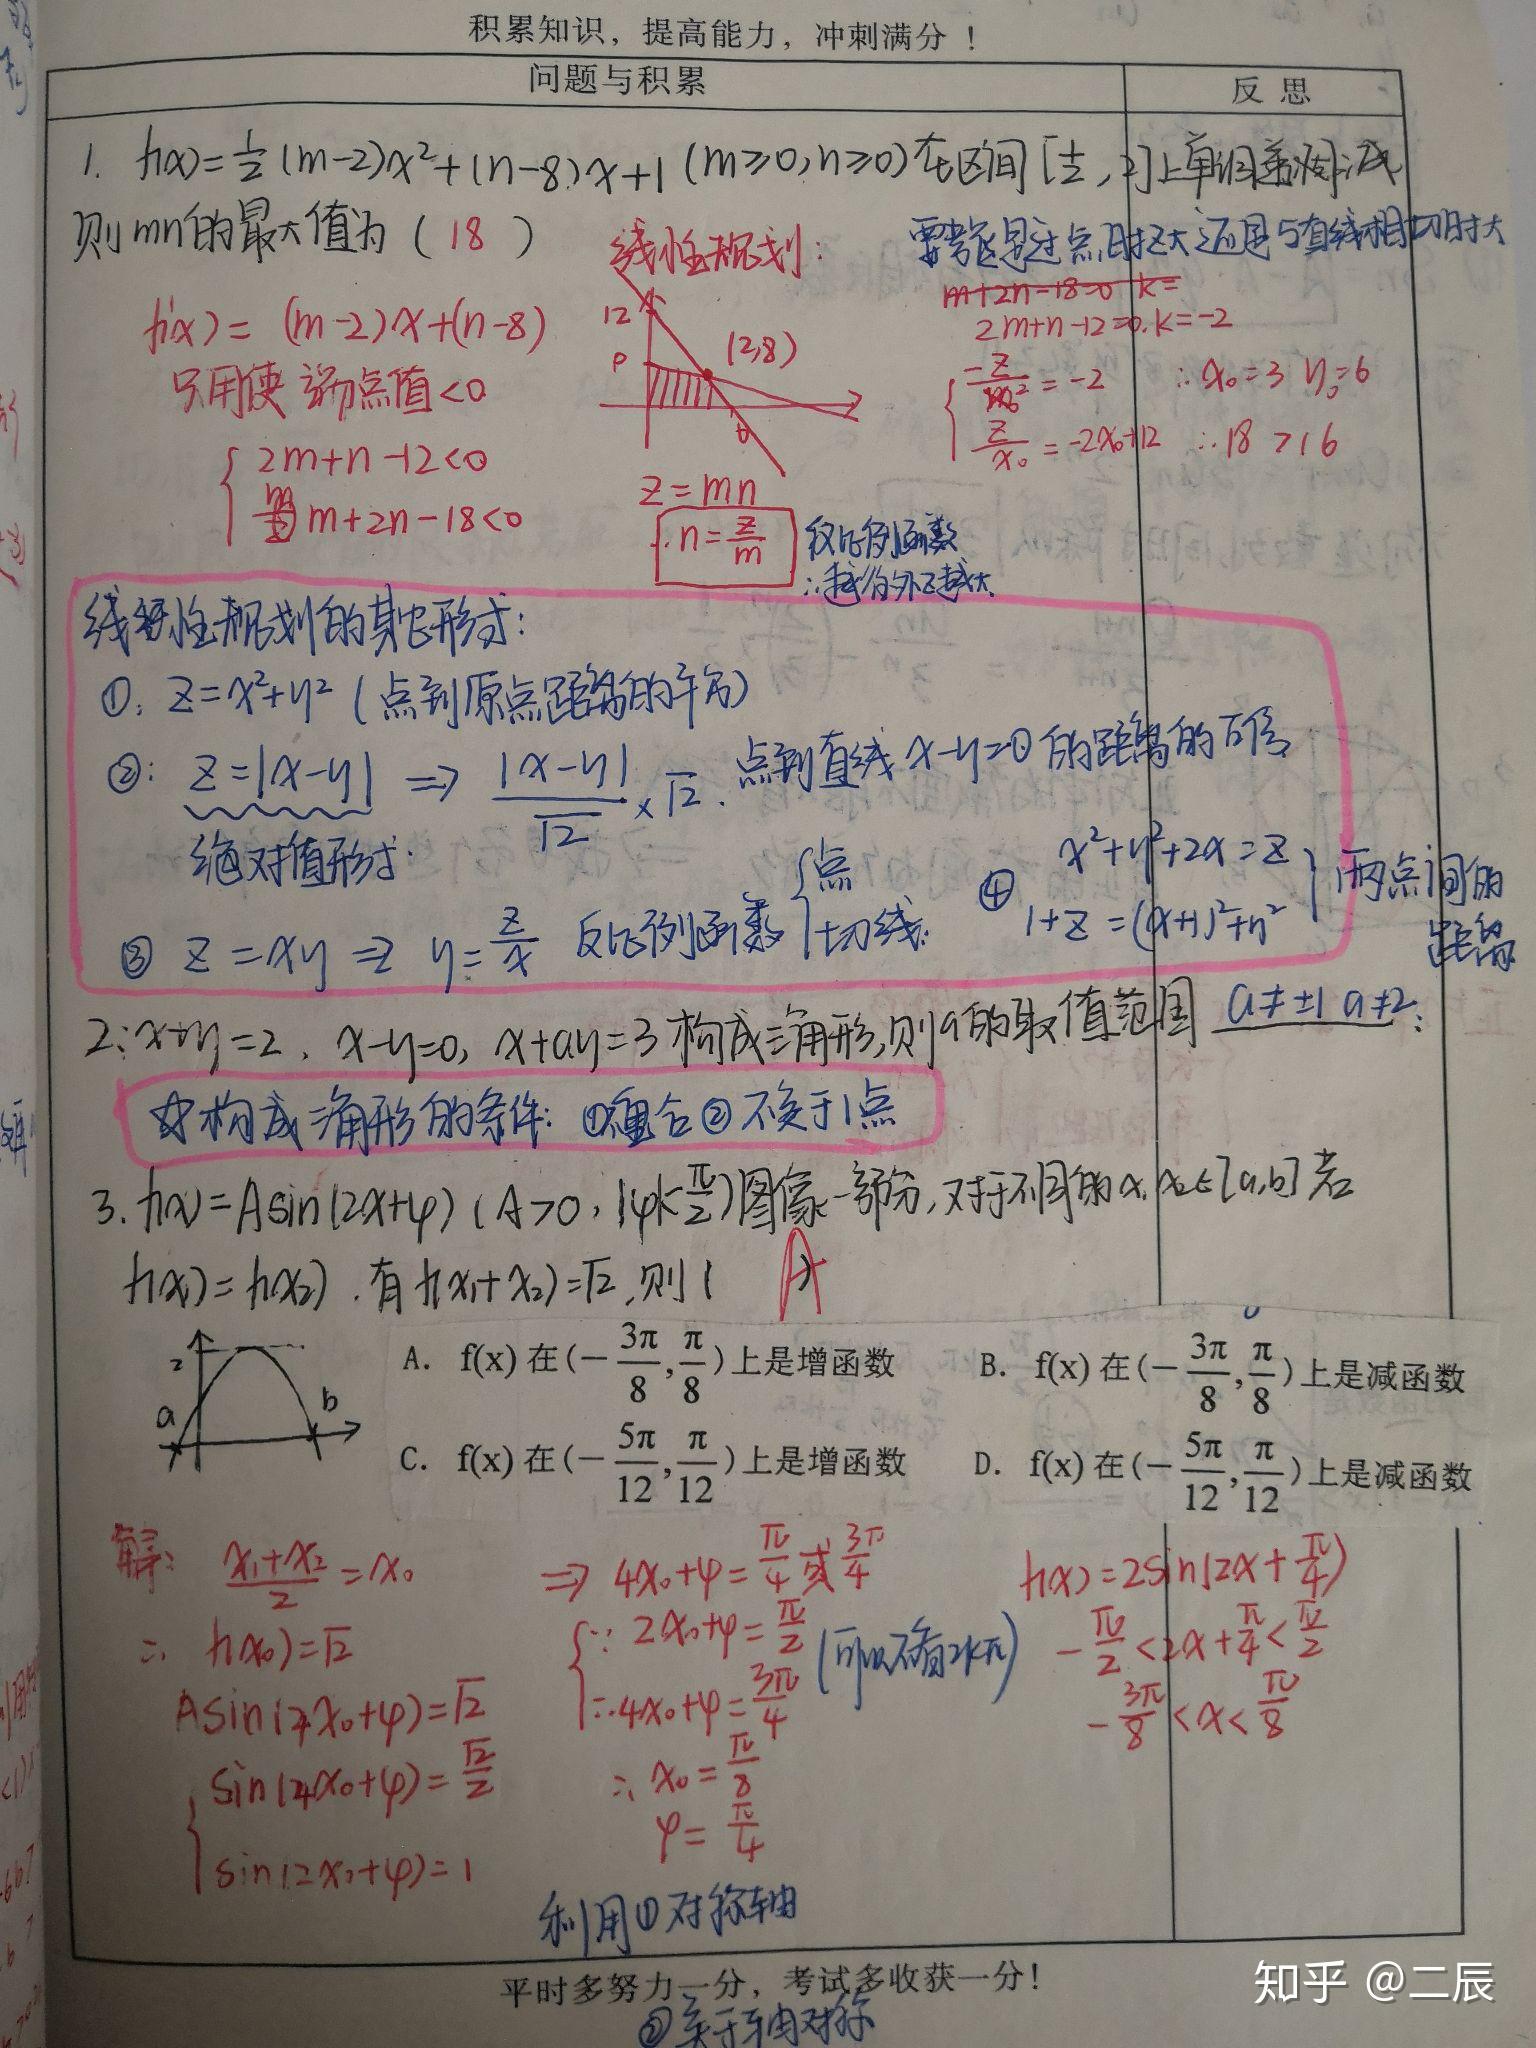 积累知识，提高能力，冲刺满分！
问题与积累
反思
1. f(x)=½(m-2)x²+(n-8)x+1 (m≥0,n≥0)在区间[½,2]上单调递减
则mn的最大值为(18)
线性规划:
要考虑是过点时Z大还是与直线相切时大
f'(x)=(m-2)x+(n-8)
只用使端点值<0
{2m+n-12<0
m+2n-18<0
12
(2,8)
z=mn
∴n=z/m
反比例函数
∴越往外Z越大
m+2n-18=0 k=
2m+n-12=0.k=-2
{-z/x₀²=-2 ∴x₀=3 y₀=6
z/x₀=-2x₀+12 ∴18>16
线性规划的其它形式:
①: z=x²+y²(点到原点距离的平方)
②: z=|x-y| ⇒ |x-y|/√2 ×√2. 点到直线x-y=0的距离的√2倍
绝对值形式.
③ z=xy ⇒ y=z/x 反比例函数{点 切线.
④ x²+y²+2x=z
1+z=(x+1)²+y²
}两点间的距离
2:x+y=2, x-y=0, x+ay=3构成三角形,则a的取值范围 a≠±1 a≠2.
☆构成三角形的条件: ①不重合②不交于1点
3. f(x)=Asin(2x+φ) (A>0, |φ|<π/2)图像一部分,对于不同的x₁x₂∈[a,b]若
f(x₁)=f(x₂).有f(x₁+x₂)=√2,则( A )
2
a
b
A. f(x)在(-3π/8,π/8)上是增函数
B. f(x)在(-3π/8,π/8)上是减函数
C. f(x)在(-5π/12,π/12)上是增函数
D. f(x)在(-5π/12,π/12)上是减函数
解: (x₁+x₂)/2=x₀
∴ f(x₀)=√2
Asin(4x₀+φ)=√2
{sin(4x₀+φ)=√2/2
sin(2x₀+φ)=1
⇒ 4x₀+φ=π/4或3π/4
{∵2x₀+φ=π/2 (可以不看2kπ)
∴4x₀+φ=3π/4
∴x₀=π/8
φ=π/4
f(x)=2sin(2x+π/4)
-π/2<2x+π/4<π/2
-3π/8<x<π/8
利用①对称轴
平时多努力一分，考试多收获一分！
②关于轴对称
知乎 @二辰